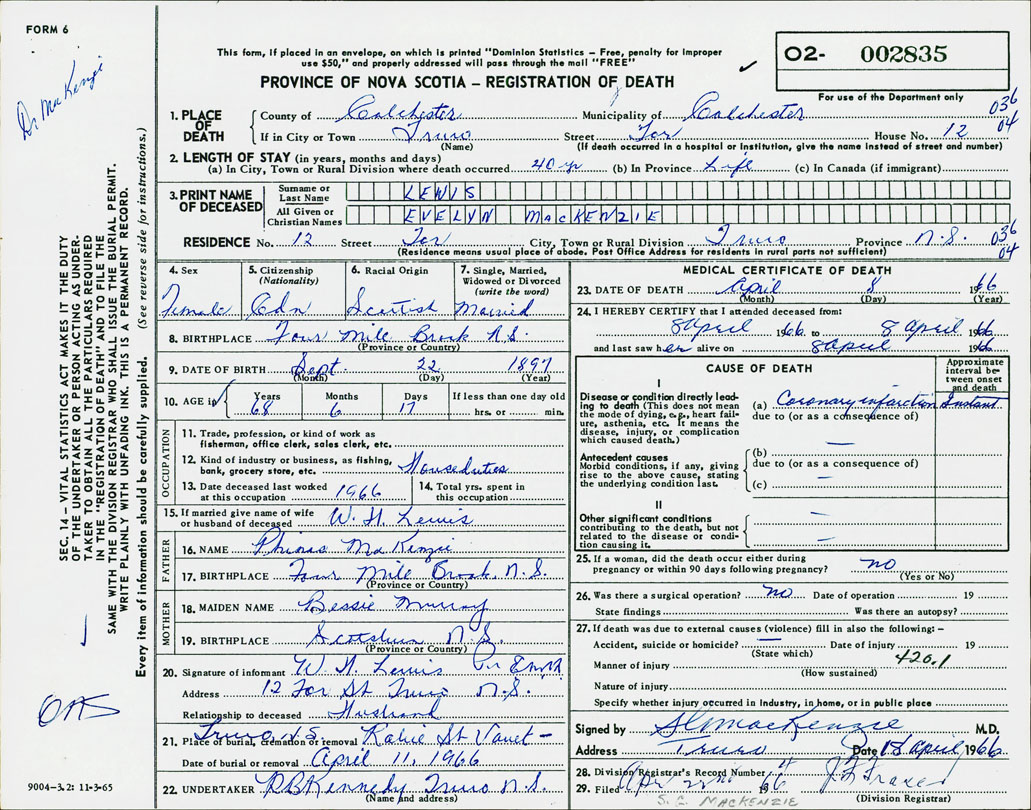 FORM 6
Dr MacKenzie
This form, if placed in an envelope, on which is printed "Dominion Statistics – Free, penalty for improper
use $50," and properly addressed will pass through the mail "FREE"
PROVINCE OF NOVA SCOTIA – REGISTRATION OF DEATH
O2- 002835
For use of the Department only
036
04
1. PLACE OF DEATH
County of Colchester Municipality of Colchester
If in City or Town Truro Street For House No. 12
(Name) (If death occurred in a hospital or institution, give the name instead of street and number)
2. LENGTH OF STAY (in years, months and days)
(a) In City, Town or Rural Division where death occurred 40 yr (b) In Province Life (c) In Canada (if immigrant)
3. PRINT NAME OF DECEASED
Surname or Last Name LEWIS
All Given or Christian Names EVELYN MacKENZIE
RESIDENCE No. 12 Street For City, Town or Rural Division Truro Province N.S. 036
04
(Residence means usual place of abode. Post Office Address for residents in rural parts not sufficient)
4. Sex Female
5. Citizenship (Nationality) Cdn
6. Racial Origin Scottish
7. Single, Married, Widowed or Divorced (write the word) Married
8. BIRTHPLACE Four Mile Brook N.S.
(Province or Country)
9. DATE OF BIRTH Sept. 22 1897
(Month) (Day) (Year)
10. AGE in Years 68 Months 6 Days 17 If less than one day old hrs. or min.
OCCUPATION
11. Trade, profession, or kind of work as
fisherman, office clerk, sales clerk, etc.
12. Kind of industry or business, as fishing,
bank, grocery store, etc. Houseduties
13. Date deceased last worked
at this occupation 1966
14. Total yrs. spent in
this occupation
15. If married give name of wife
or husband of deceased W. H. Lewis
FATHER
16. NAME MacKenzie
17. BIRTHPLACE Four Mile Brook, N.S.
(Province or Country)
MOTHER
18. MAIDEN NAME Bessie Murray
19. BIRTHPLACE N.S.
(Province or Country)
20. Signature of informant W H Lewis
Address 12 For St Truro N.S.
Relationship to deceased Husband
21. Place of burial, cremation or removal Truro N S St Vault –
Date of burial or removal April 11, 1966
22. UNDERTAKER Kennedy Truro N.S.
(Name and address)
MEDICAL CERTIFICATE OF DEATH
23. DATE OF DEATH April 8 1966
(Month) (Day) (Year)
24. I HEREBY CERTIFY that I attended deceased from:
8 April 1966 to 8 April 1966
and last saw her alive on 8 April 1966
CAUSE OF DEATH
Approximate interval between onset and death
I
Disease or condition directly leading to death (This does not mean the mode of dying, e.g., heart failure, asthenia, etc. It means the disease, injury, or complication which caused death.)
(a) Coronary infarction Instant
due to (or as a consequence of)
Antecedent causes
Morbid conditions, if any, giving rise to the above cause, stating the underlying condition last.
(b)
due to (or as a consequence of)
(c)
II
Other significant conditions
contributing to the death, but not related to the disease or condition causing it.
25. If a woman, did the death occur either during
pregnancy or within 90 days following pregnancy? no
(Yes or No)
26. Was there a surgical operation? no Date of operation 19
State findings Was there an autopsy?
27. If death was due to external causes (violence) fill in also the following: –
Accident, suicide or homicide? Date of injury 19
(State which) 420.1
Manner of injury
(How sustained)
Nature of injury
Specify whether injury occurred in Industry, in home, or in public place
Signed by MacKenzie M.D.
Address Truro Date April 1966
28. Division Registrar's Record Number
29. Filed Apr 22nd 1966
(Division Registrar)
S. G. MACKENZIE
SEC. 14 – VITAL STATISTICS ACT MAKES IT THE DUTY
OF THE UNDERTAKER OR PERSON ACTING AS UNDER-
TAKER TO OBTAIN ALL THE PARTICULARS REQUIRED
IN THE "REGISTRATION OF DEATH" AND TO FILE THE
SAME WITH THE DIVISION REGISTRAR WHO SHALL ISSUE THE BURIAL PERMIT.
WRITE PLAINLY WITH UNFADING INK. THIS IS A PERMANENT RECORD.
Every item of information should be carefully supplied. (See reverse side for instructions.)
9004-3.2: 11-3-65